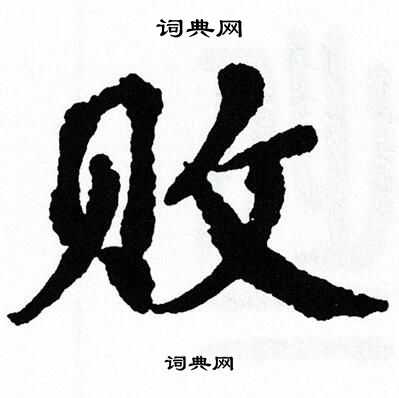 词典网
败
词典网